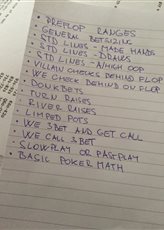 • PREFLOP RANGES
• GENERAL BETSIZING
• STD LINES - MADE HANDS
• STD LINES - DRAWS
• STD LINES - A/HIGH OOP
• VILLAIN CHECKS BEHIND FLOP
• WE CHECK BEHIND ON FLOP
• DONKBETS
• TURN RAISES
• RIVER RAISES
• LIMPED POTS
• WE 3BET AND GET CALL
• WE CALL 3BET
• SLOWPLAY OR FASTPLAY
• BASIC POKER MATH